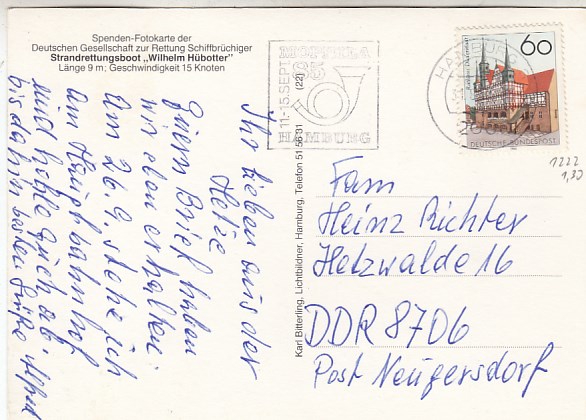 Spenden-Fotokarte der
Deutschen Gesellschaft zur Rettung Schiffbrüchiger
Strandrettungsboot „Wilhelm Hübotter"
Länge 9 m; Geschwindigkeit 15 Knoten
Ihr Lieben aus der
Hetze
Euern Brief haben
wir eben erhalten.
Am 26.9. stehe ich
am Hauptbahnhof
und hole Euch ab.
bis dahin besten Grüße Alfred
Karl Bitterling, Lichtbildner, Hamburg, Telefon 51 56 31
11.-15.SEPT.
MOPHILA
85
(22)
HAMBURG
HAMBURG
60
DEUTSCHE BUNDESPOST
1222
1,30
Fam
Heinz Richter
Hetzwalde 16
DDR 8706
Post Neugersdorf